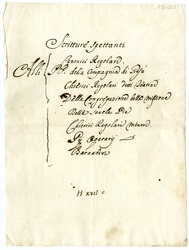 Scritture Spettanti
Alli Chierici Regolari
PP. della Compagnia di Giesù
Chierici Regolari detti
Della Congregatione della Missione
Delle Scuole Pie
Chierici Regolari Minori
Barnabiti
H XVII c